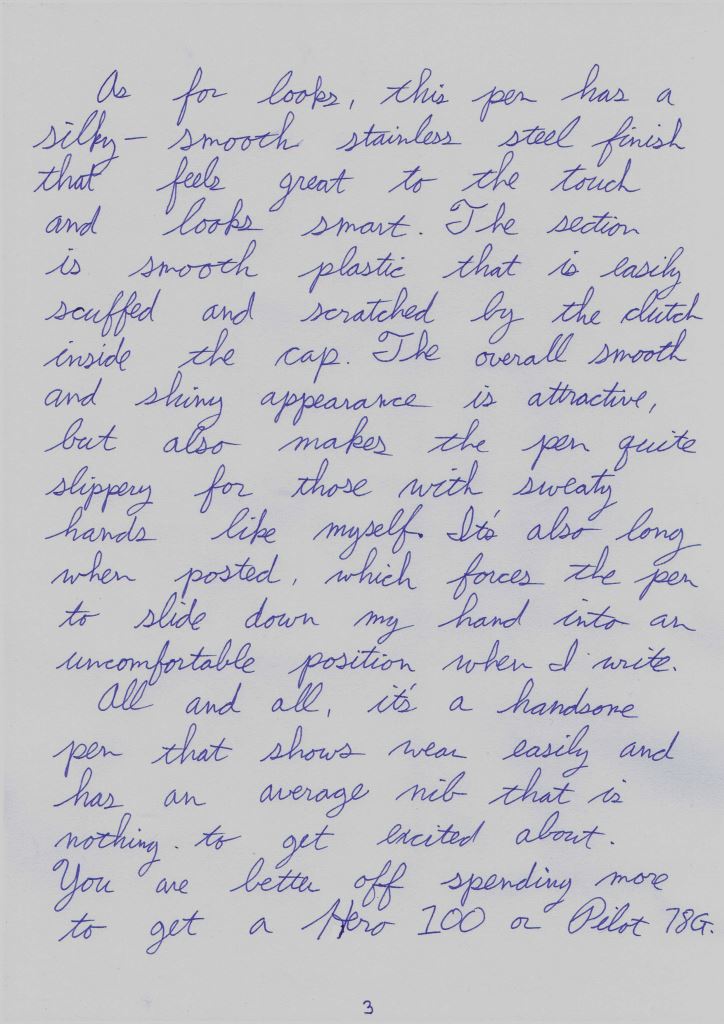 As for looks, this pen has a
silky- smooth stainless steel finish
that feels great to the touch
and looks smart. The section
is smooth plastic that is easily
scuffed and scratched by the clutch
inside the cap. The overall smooth
and shiny appearance is attractive,
but also makes the pen quite
slippery for those with sweaty
hands like myself. It's also long
when posted, which forces the pen
to slide down my hand into an
uncomfortable position when I write.
All and all, it's a handsome
pen that shows wear easily and
has an average nib that is
nothing to get excited about.
You are better off spending more
to get a Hero 100 or Pilot 78G.
3